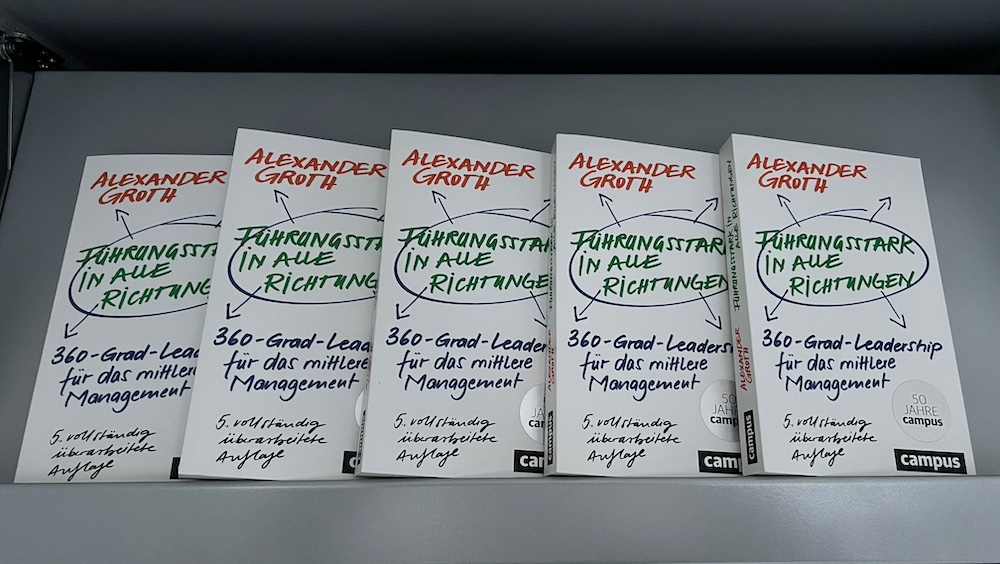 ALEXANDER
GROTH
FÜHRUNGSSTA
IN ALLE
RICHTUNG
360-Grad-Lead
für das mittlere
Management
5. vollständig
überarbeitete
Auflage
ALEXANDER
GROTH
FÜHRUNGSSTA
IN ALLE
RICHTUNG
360-Grad-Leade
für das mittlere
Management
5. vollständig
überarbeitete
Auflage
c
ALEXANDER
GROTH
FÜHRUNGSSTAR
IN ALLE
RICHTUNGE
360-Grad-Leader
für das mittlere
Management
5. vollständig
überarbeitete
Auflage
JA
ca
ca
FÜHRUNGSSTARK IN
ALLE RICHTUNGEN
ALEXANDER
GROTH
campus
ALEXANDER
GROTH
FÜHRUNGSSTARK
IN ALLE
RICHTUNGEN
360-Grad-Leadersh
für das mittlere
Management
5. vollständig
überarbeitete
Auflage
50
JAHR
camp
cam
FÜHRUNGSSTARK IN
ALLE RICHTUNGEN
ALEXANDER
GROTH
campus
ALEXANDER
GROTH
FÜHRUNGSSTARK
IN ALLE
RICHTUNGEN
360-Grad-Leadership
für das mittlere
Management
5. vollständig
überarbeitete
Auflage
50
JAHRE
campus
campus